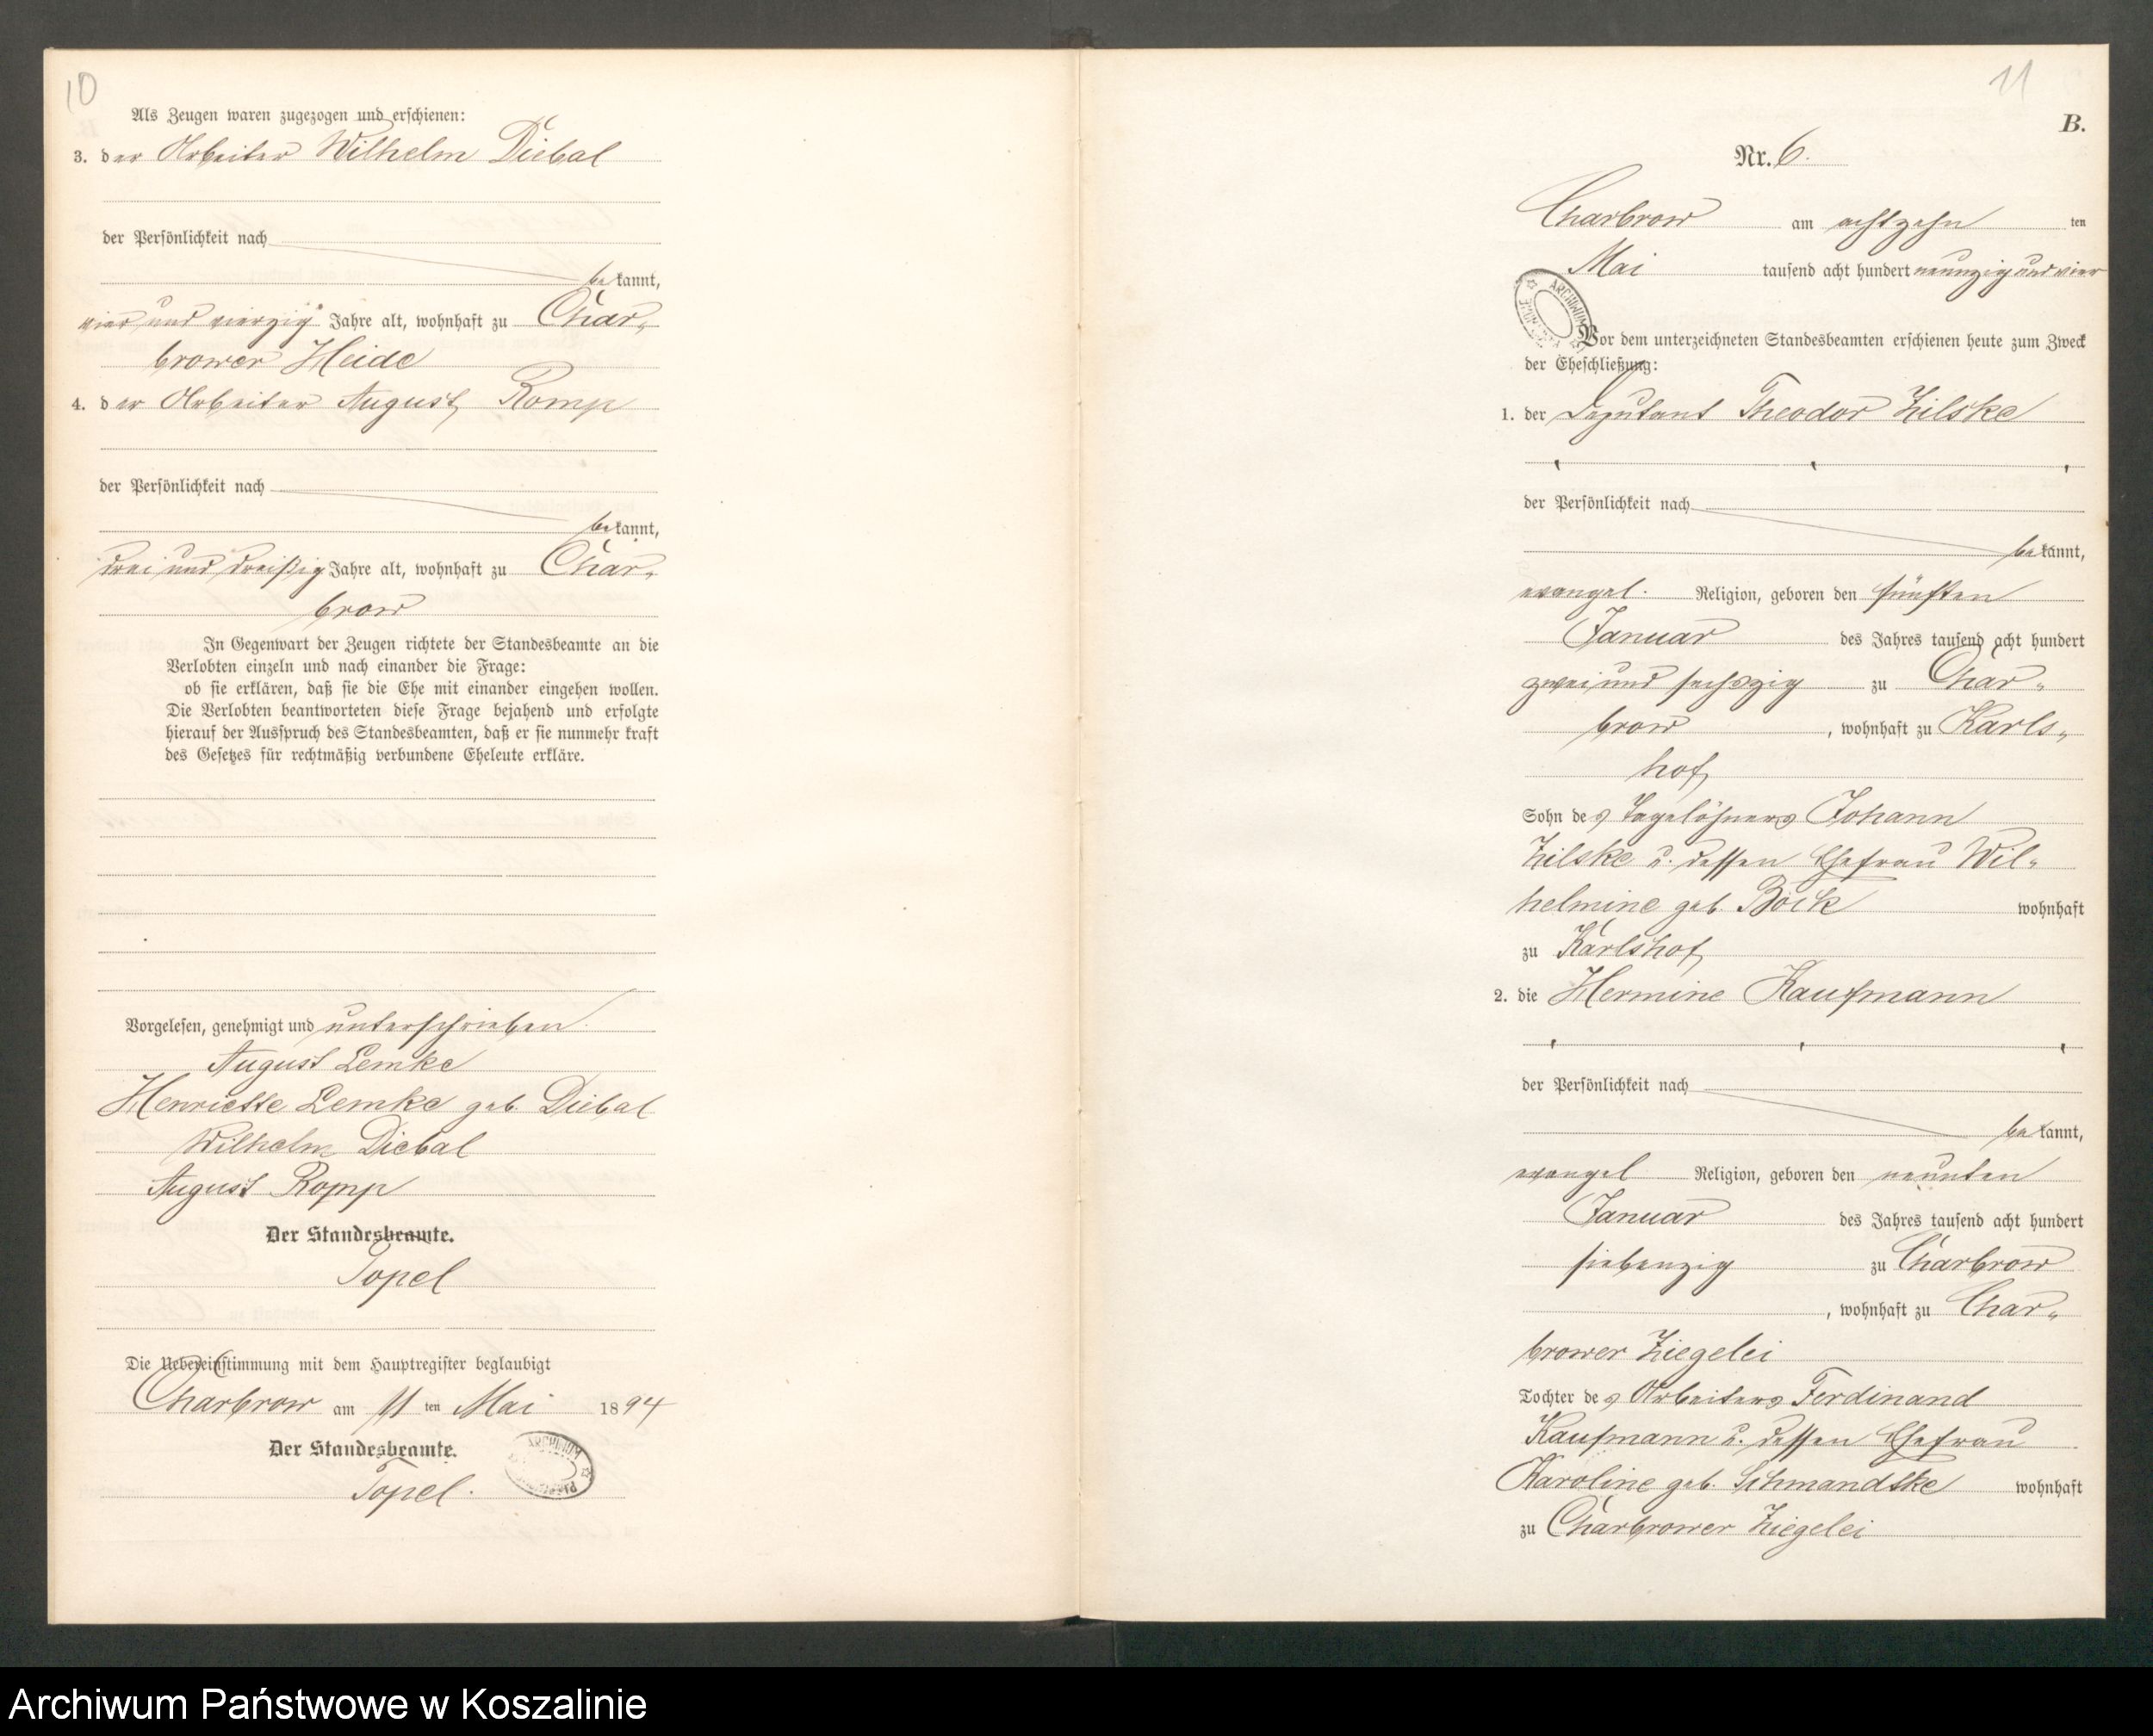 10
Als Zeugen waren zugezogen und erschienen:
3. der Arbeiter Wilhelm Diebal
der Persönlichkeit nach
bekannt,
vier und vierzig Jahre alt, wohnhaft zu Char-
brower Heide
4. der Arbeiter August Romp
der Persönlichkeit nach
bekannt,
drei und dreißig Jahre alt, wohnhaft zu Char-
brow
In Gegenwart der Zeugen richtete der Standesbeamte an die
Verlobten einzeln und nach einander die Frage:
ob sie erklären, daß sie die Ehe mit einander eingehen wollen.
Die Verlobten beantworteten diese Frage bejahend und erfolgte
hierauf der Ausspruch des Standesbeamten, daß er sie nunmehr kraft
des Gesetzes für rechtmäßig verbundene Eheleute erkläre.
Vorgelesen, genehmigt und unterschrieben.
August Lemke
Henriette Lemke geb. Diebal
Wilhelm Diebal
August Romp
Der Standesbeamte.
Topel
Die Uebereinstimmung mit dem Hauptregister beglaubigt
Charbrow am 11 ten Mai 1894
Der Standesbeamte.
Topel.
ARCHIWUM
11
B.
Nr. 6.
Charbrow am achtzehn ten
Mai tausend acht hundert neunzig und vier
ARCHIWUM
Vor dem unterzeichneten Standesbeamten erschienen heute zum Zweck
der Eheschließung:
1. der Deputant Theodor Zilske
der Persönlichkeit nach
bekannt,
evangel. Religion, geboren den fünften
Januar des Jahres tausend acht hundert
zwei und sechszig zu Char-
brow, wohnhaft zu Karls-
hof
Sohn des Tagelöhners Johann
Zilske u. dessen Ehefrau Wil-
helmine geb. Böck wohnhaft
zu Karlshof
2. die Hermine Kaufmann
der Persönlichkeit nach
bekannt,
evangel Religion, geboren den neunten
Januar des Jahres tausend acht hundert
siebenzig zu Charbrow
, wohnhaft zu Char-
brower Ziegelei
Tochter des Arbeiters Ferdinand
Kaufmann u. dessen Ehefrau
Karoline geb. Schmandtke wohnhaft
zu Charbrower Ziegelei
Archiwum Państwowe w Koszalinie